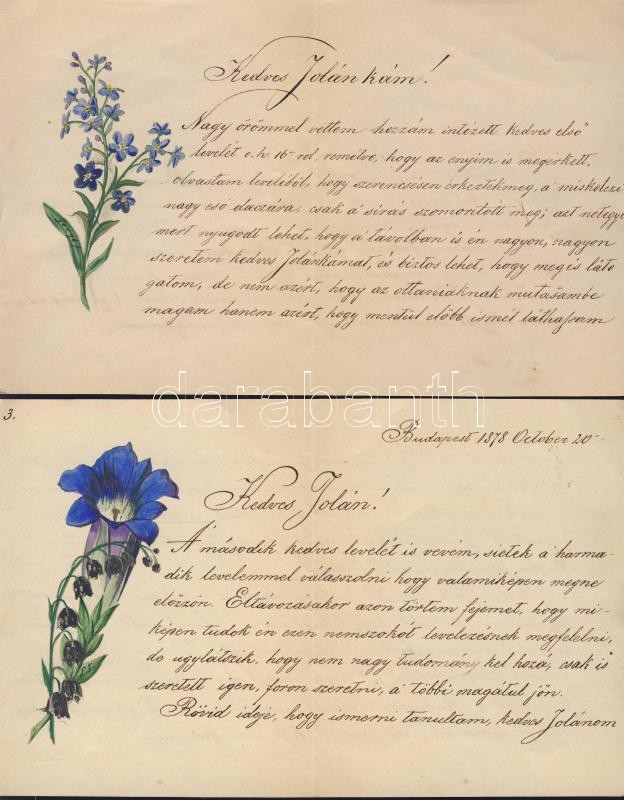 Kedves Jolánkám!
Nagy örömmel vettem hozzám intézett kedves első
levelét e.h. 16-ról, remélve, hogy az enyim is megérkett,
olvastam leveléből, hogy szerencsésen érkeztekmeg, a miskolczi
nagy eső daczára, csak a sirás szomoritott meg; azt netegye
mert nyugodt lehet, hogy a távolban is én nagyon, nagyon
szeretem kedves Jolánkamat, és biztos lehet, hogy megis láto
gatom, de nem azért, hogy az ottaniaknak mutassambe
magam hanem azért, hogy mentül előbb ismét láthassam
darabanth
3.
Budapest 1878 October 20-
Kedves Jolán!
A második kedves levelét is vevém, sietek a harma-
dik levelemmel válaszolni hogy valamiképen megne
előzzön. Eltávozásakor azon törtem fejemet, hogy mi-
képen tudok én ezen nemszokót levelezésnek megfelelni,
de ugylátszik, hogy nem nagy tudomány kel hozá, csak is
szeretett igen, foron szeretni, á többi magátul jön.
Rövid ideje, hogy ismerni tanultam, kedves Jolánom